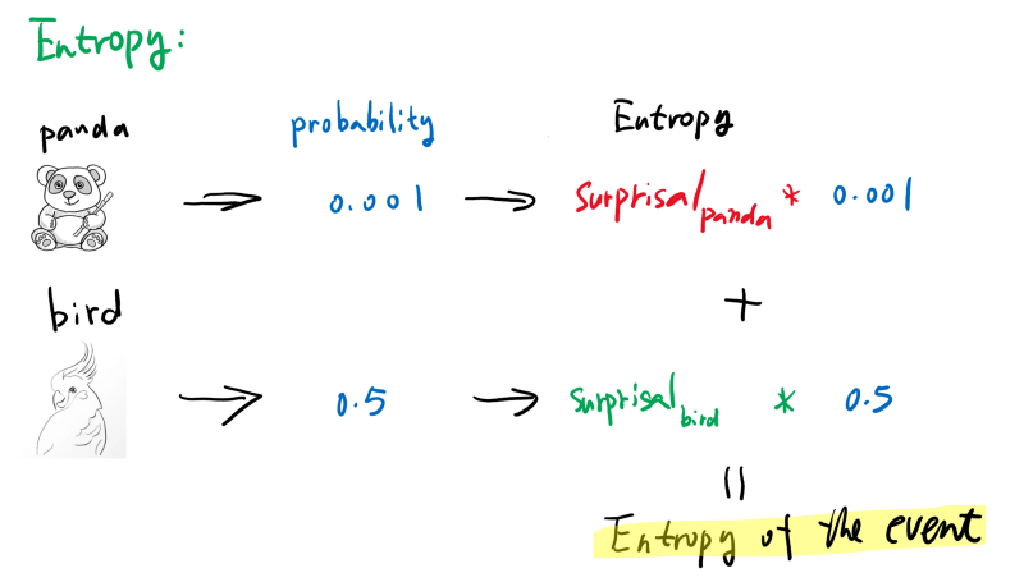 Entropy:
panda probability Entropy
0.001 Surprisal panda * 0.001
bird
+
0.5 Surprisal bird * 0.5
=
Entropy of the event